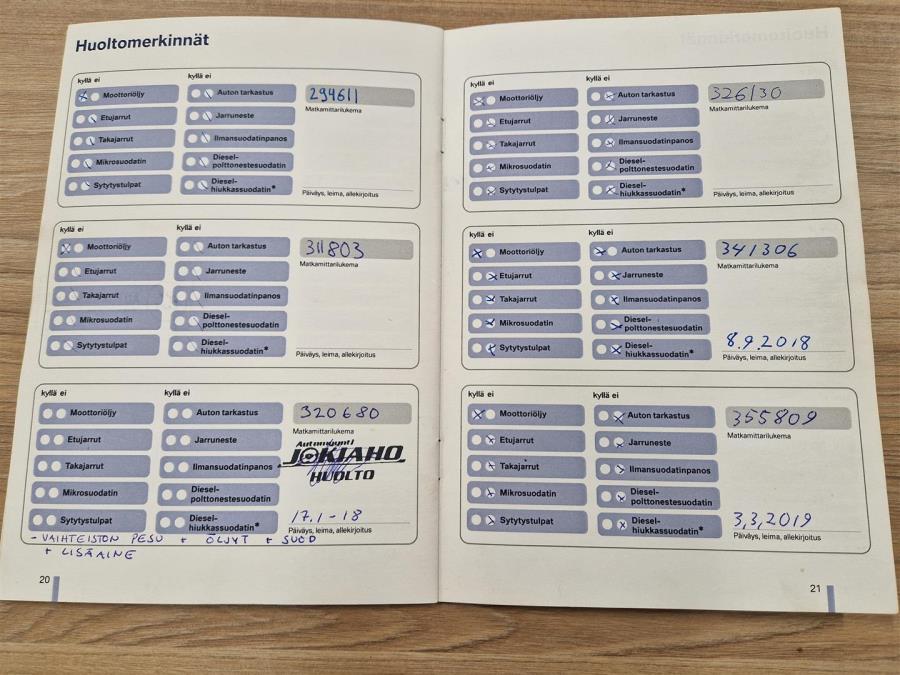 Huoltomerkinnät
kyllä ei kyllä ei
Moottoriöljy Auton tarkastus 294611
Matkamittarilukema
Etujarrut Jarruneste
Takajarrut Ilmansuodatinpanos
Mikrosuodatin Diesel-
polttonestesuodatin
Sytytystulpat Diesel-
hiukkassuodatin*
Päiväys, leima, allekirjoitus
kyllä ei kyllä ei
Moottoriöljy Auton tarkastus 311803
Matkamittarilukema
Etujarrut Jarruneste
Takajarrut Ilmansuodatinpanos
Mikrosuodatin Diesel-
polttonestesuodatin
Sytytystulpat Diesel-
hiukkassuodatin*
Päiväys, leima, allekirjoitus
kyllä ei kyllä ei
Moottoriöljy Auton tarkastus 320680
Matkamittarilukema
Etujarrut Jarruneste
Automyynti
JOKIAHO
HUOLTO
Takajarrut Ilmansuodatinpanos
Mikrosuodatin Diesel-
polttonestesuodatin
Sytytystulpat Diesel-
hiukkassuodatin*
17.1-18
Päiväys, leima, allekirjoitus
- VAIHTEISTON PESU + ÖLJYT + SUOD
+ LISÄAINE
20
kyllä ei kyllä ei
Moottoriöljy Auton tarkastus 326130
Matkamittarilukema
Etujarrut Jarruneste
Takajarrut Ilmansuodatinpanos
Mikrosuodatin Diesel-
polttonestesuodatin
Sytytystulpat Diesel-
hiukkassuodatin*
Päiväys, leima, allekirjoitus
kyllä ei kyllä ei
Moottoriöljy Auton tarkastus 341306
Matkamittarilukema
Etujarrut Jarruneste
Takajarrut Ilmansuodatinpanos
Mikrosuodatin Diesel-
polttonestesuodatin
Sytytystulpat Diesel-
hiukkassuodatin*
8.9.2018
Päiväys, leima, allekirjoitus
kyllä ei kyllä ei
Moottoriöljy Auton tarkastus 355809
Matkamittarilukema
Etujarrut Jarruneste
Takajarrut Ilmansuodatinpanos
Mikrosuodatin Diesel-
polttonestesuodatin
Sytytystulpat Diesel-
hiukkassuodatin*
3,3,2019
Päiväys, leima, allekirjoitus
21